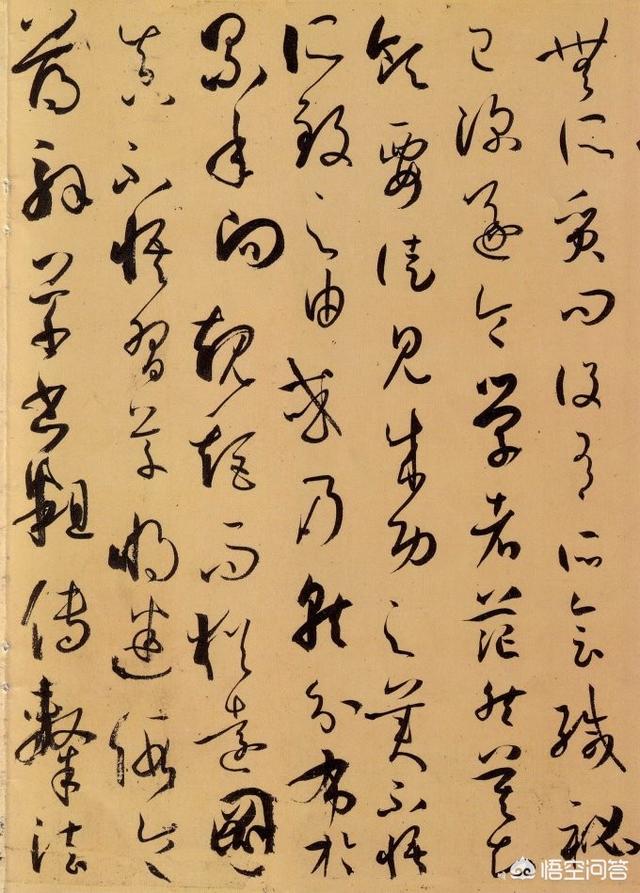 無所質問設有所會緘秘
已深遂令學者茫然莫知
領要徒見成功之美不悟
所致之由或乃就分布於
累年向規矩而猶遠圖
真不悟習草將迷假令
薄解草書麤傳隸法
悟空问答